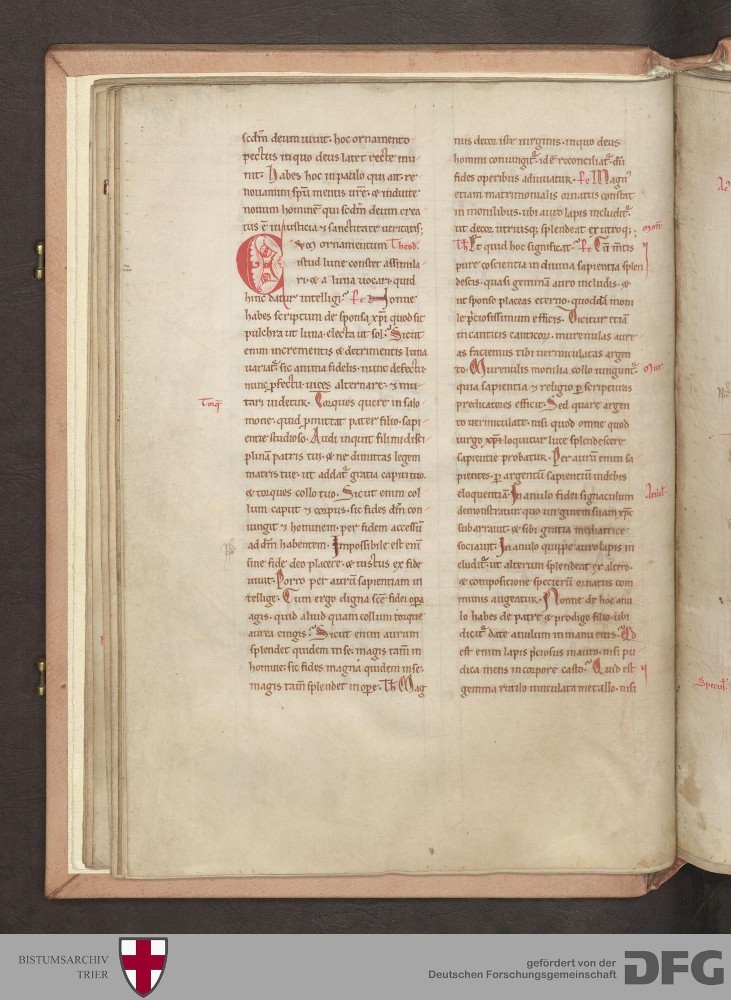 scdm deum uiuit. hoc ornamento
pectus in quo deus latet recte mu-
nit. Habes hoc in paulo qui ait. re-
nouamini spu mentis ure. & induite
nouum homine qui scdm deum crea
tus e in iusticia & sanctitate ueritatis;
ornamentum Theod.
istud lune constet assimila
ri. & a luna uocari. quid
hinc datur intelligi? Pe Nonne
habes scriptum de sponsa xpi quod sit
pulchra ut luna. electa ut sol? Sicut
enim incrementis & detrimentis luna
uariat. sic anima fidelis. nunc defectu.
nunc pfectu. uices alternare. & mu-
Torq
tari uidetur. Torques quere in salo
mone. quid pmittat pater filio. sapi-
entie studioso. Audi inquit fili mi disci
plina patris tui. & ne dimittas legem
matris tue. ut addat gratia capiti tuo.
& torques collo tuo. Sicut enim col
lum caput & corpus. sic fides dm con-
iungit & hominem. per fidem accessu
ad dm habentem. Impossibile est eni
sine fide deo placere. & iustus ex fide
uiuit. Porro per auru sapientiam in
tellige. Cum ergo digna sce fidei opa
agis. quid aliud quam collum torque
aurea cingis? Sicut enim aurum
splendet quidem in se. magis tam in
homine. sic fides magna quidem in se.
magis tam splendet in ope. Th Mag
nus decor iste uirginis. in quo deus
homini coniungit. id e reconciliat. du
fides operibus adiuuatur. Pe Magn
etiam matrimonialis ornatus constat
in monilibus. ubi auro lapis includit.
ut decor utriusque splendeat ex utroq;
Moni
Th Et quid hoc significat? Pe Cu mtis
pure coscientia in diuina sapientia splen
descis. quasi gemma auro includis. &
ut sponso placeas eterno. quodda moni
le pciosissimum efficis. Dicitur etia
in canticis canticor. murenulas aure-
as faciemus tibi uermiculatas argen
to. Murenulis monilia collo iungunt.
Mur
quia sapientia & religio p scripturas
predicatores efficit. Sed quare argen
to uermiculate. nisi quod omne quod
uirgo xpi loquitur luce splendescere
sapientie probatur. Per auru enim sa
pientes. p argentu sapientiu uidebis
eloquentia. In anulo fidei signaculum
Anul.
demonstratur quo uirginem suam xpc
subarrauit. & sibi gratia mediatrice
sociauit. In anulo quippe auro lapis in
cludit. ut alterum splendeat ex altero.
& compositione specieru ornatus com
munis augeatur. Nonne de hoc anu
lo habes de patre & prodigo filio. ubi
dicit. date anulum in manu eius.
est enim lapis pciosus in auro. nisi pu
dica mens in corpore casto? Quid est
gemma rutilo iunculata metallo. nisi
Specul.
BISTUMSARCHIV
TRIER
gefördert von der
Deutschen Forschungsgemeinschaft
DFG